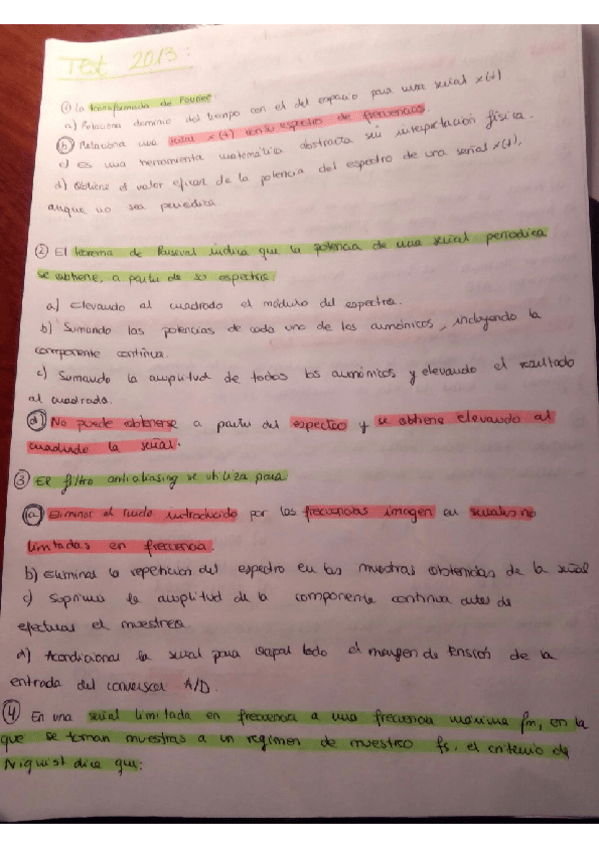 Test 2013:
① La transformada de Fourier
a) Relaciona dominio del tiempo con el del espacio para una señal x(t)
ⓑ Relaciona una señal x(t) con su espectro de frecuencias.
c) es una herramienta matemática abstracta sin interpretación física.
d) Obtiene el valor eficaz de la potencia del espectro de una señal x(t),
aunque no sea periódica
② El teorema de Parseval indica que la potencia de una señal periodica
se obtiene, a partir de su espectro:
a) Elevando al cuadrado el módulo del espectro.
b) Sumando las potencias de cada uno de los armónicos, incluyendo la
componente continua.
c) Sumando la amplitud de todos los armónicos y elevando el resultado
al cuadrado.
ⓓ No puede obtenerse a partir del espectro y se obtiene elevando al
cuadrado la señal.
③ El filtro antialiasing se utiliza para
ⓐ Eliminar el ruido introducido por las frecuencias imagen en señales no
limitadas en frecuencia.
b) Eliminar la repetición del espectro en las muestras obtenidas de la señal
c) Suprimir la amplitud de la componente continua antes de
efectuar el muestreo.
d) Acondicionar la señal para ocupar todo el margen de tensión de la
entrada del conversor A/D.
④ En una señal limitada en frecuencia a una frecuencia máxima fm, en la
que se toman muestras a un regimen de muestreo fs, el criterio de
Niquist dice que: